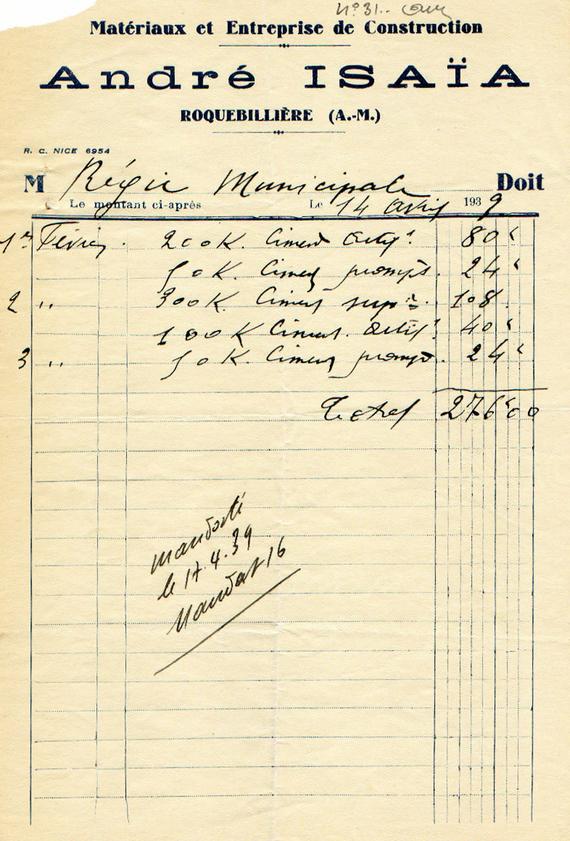 N° 31.
Matériaux et Entreprise de Construction
André ISAÏA
ROQUEBILLIÈRE (A.-M.)
R. C. NICE 6954
M Régie Municipale Doit
Le montant ci-après Le 14 avril 1939
1er Février. 200 K. Ciment artif. 80 "
50 K. Ciment prompt. 24 "
2 " 300 K. Ciment sup. 108.
100 K Ciment. artif. 40 "
3 " 50 K. Ciment prompt. 24 "
Total 276 " 00
mandaté
le 17.4.39
Mandat 16